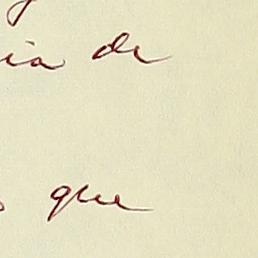 ia de
que